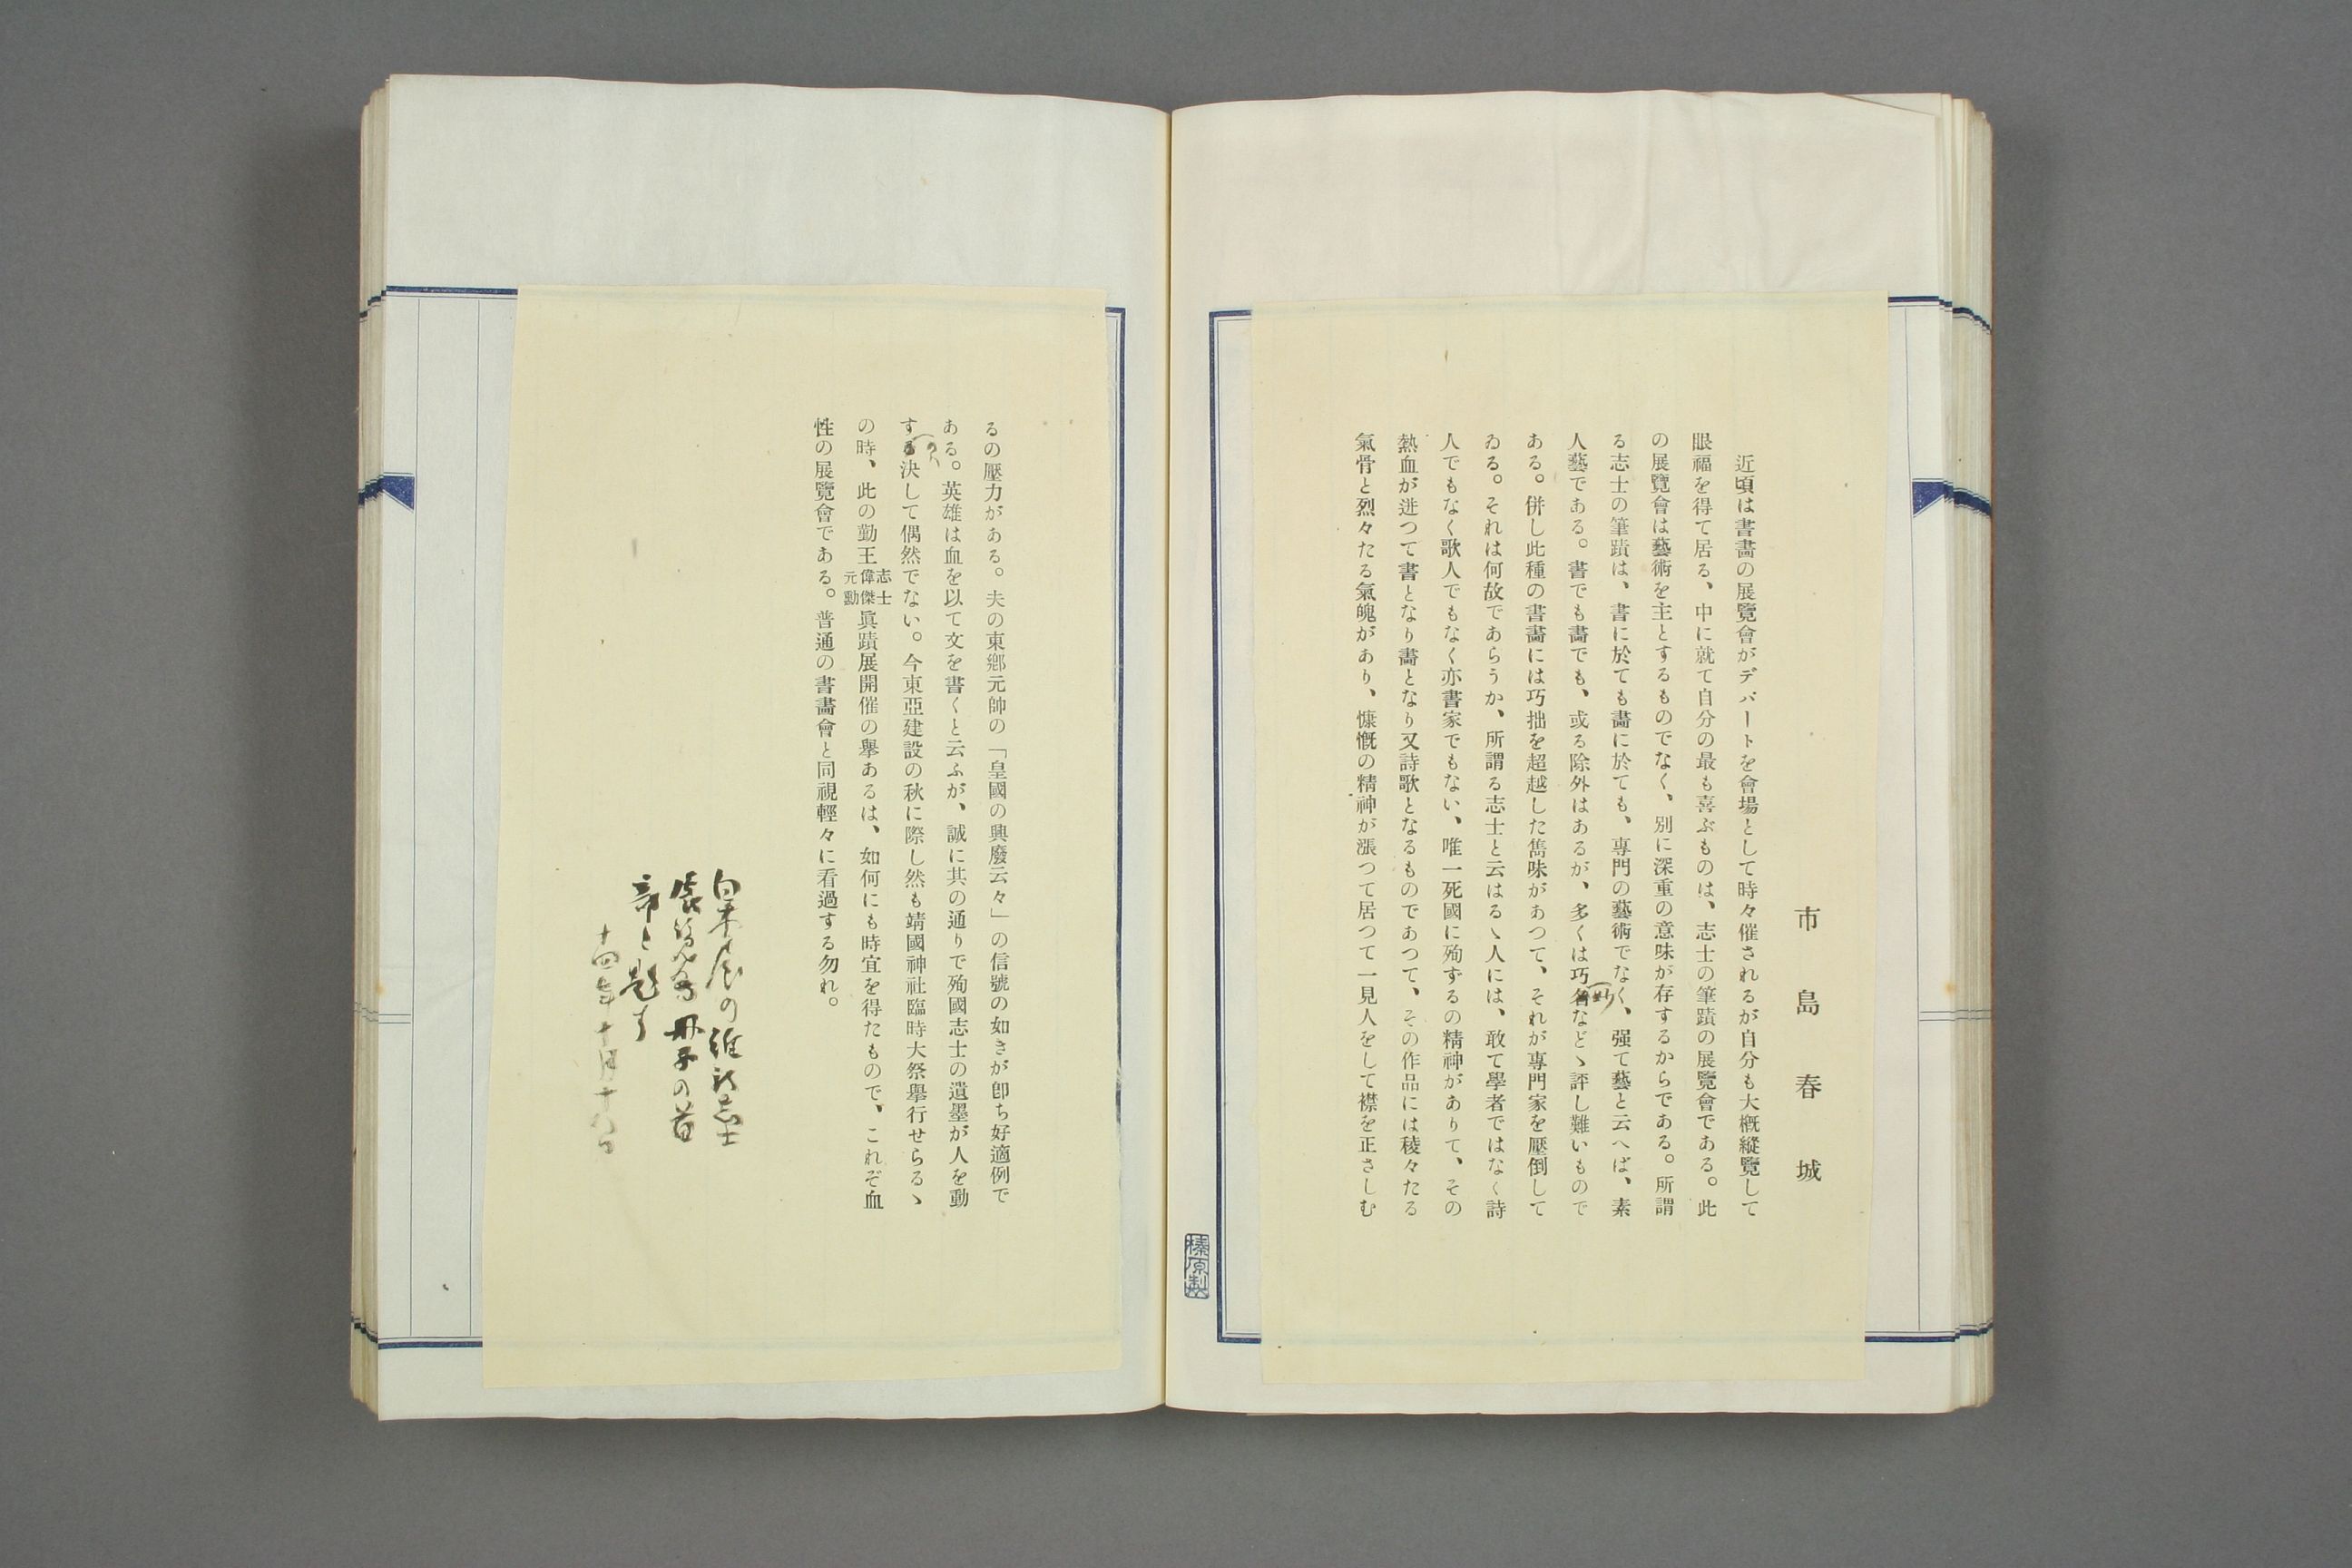 市島春城
近頃は書畵の展覽會がデパートを會場として時々催されるが自分も大槪縱覽して
眼福を得て居る、中に就て自分の最も喜ぶものは、志士の筆蹟の展覽會である。此
の展覽會は藝術を主とするものでなく、別に深重の意味が存するからである。所謂
る志士の筆蹟は、書に於ても畵に於ても、專門の藝術でなく、强て藝と云へば、素
人藝である。書でも畵でも、或る除外はあるが、多くは巧拙などゝ評し難いもので
ある。併し此種の書畵には巧拙を超越した雋味があつて、それが專門家を壓倒して
ゐる。それは何故であらうか、所謂る志士と云はるゝ人には、敢て學者ではなく詩
人でもなく歌人でもなく亦書家でもない、唯一死國に殉ずるの精神がありて、その
熱血が迸つて書となり畵となり又詩歌となるものであつて、その作品には稜々たる
氣骨と烈々たる氣魄があり、慷慨の精神が漲つて居つて一見人をして襟を正さしむ
るの壓力がある。夫の東鄕元帥の「皇國の興廢云々」の信號の如きが卽ち好適例で
ある。英雄は血を以て文を書くと云ふが、誠に其の通りで殉國志士の遺墨が人を動
するの決して偶然でない。今東亞建設の秋に際し然も靖國神社臨時大祭擧行せらるゝ
の時、此の勤王志士偉傑元勳眞蹟展開催の擧あるは、如何にも時宜を得たもので、これぞ血
性の展覽會である。普通の書畵會と同視輕々に看過する勿れ。
白木屋の維新志士
展覽會冊子の首
部と題す
十四年十月十八日
榛原製